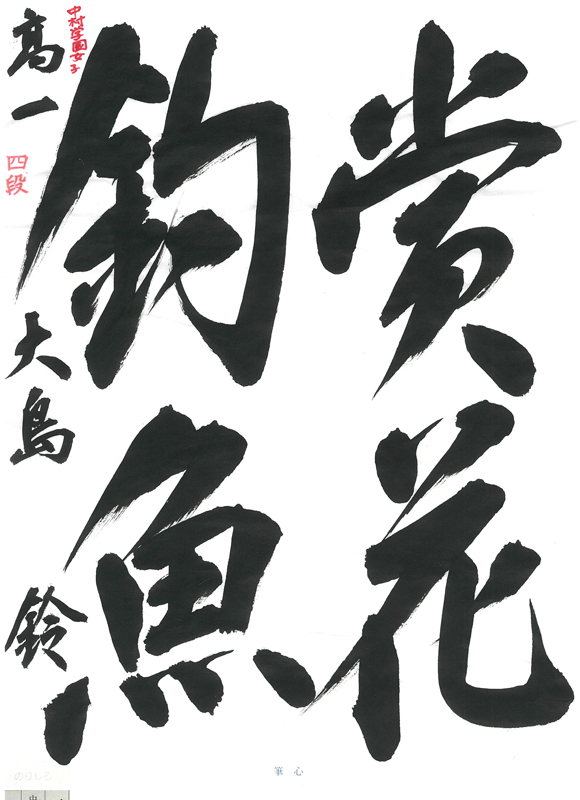 賞花
釣魚
中村学園女子
高一 四段 大島 鈴
心筆